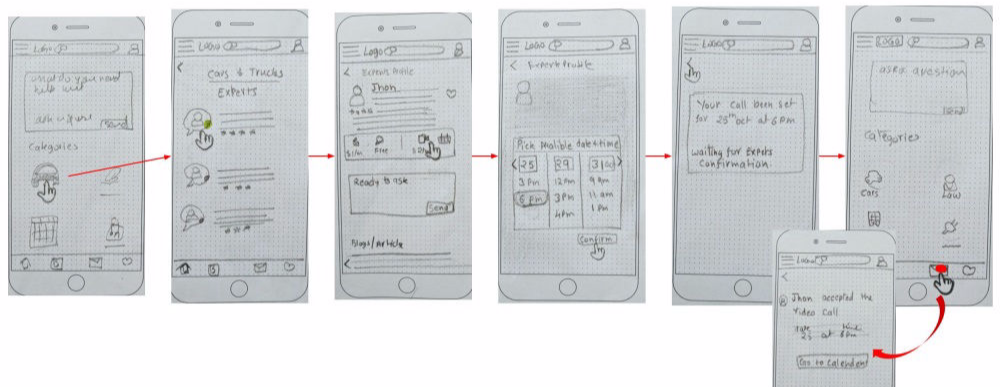 Logo
what do you need
help with
ask expert
Send
Categories
Logo
Cars & Trucks
Experts
Logo
< Experts Profile
Jhon
Free
Ready to ask
Send
Blogs/Article
Logo
< Experts Profile
Pick posible date & time
25
29
31
3 pm
12 pm
9 am
6 pm
3 pm
11 am
4 pm
1 pm
Confirm
Logo
Your call been set
for 25th oct at 6 pm
waiting for Experts
Confirmation
LOGO
ask a question
Send
Categories
Cars
Law
Logo
Jhon accepted the
video call
date time
25 at 6 pm
Go to Calendar